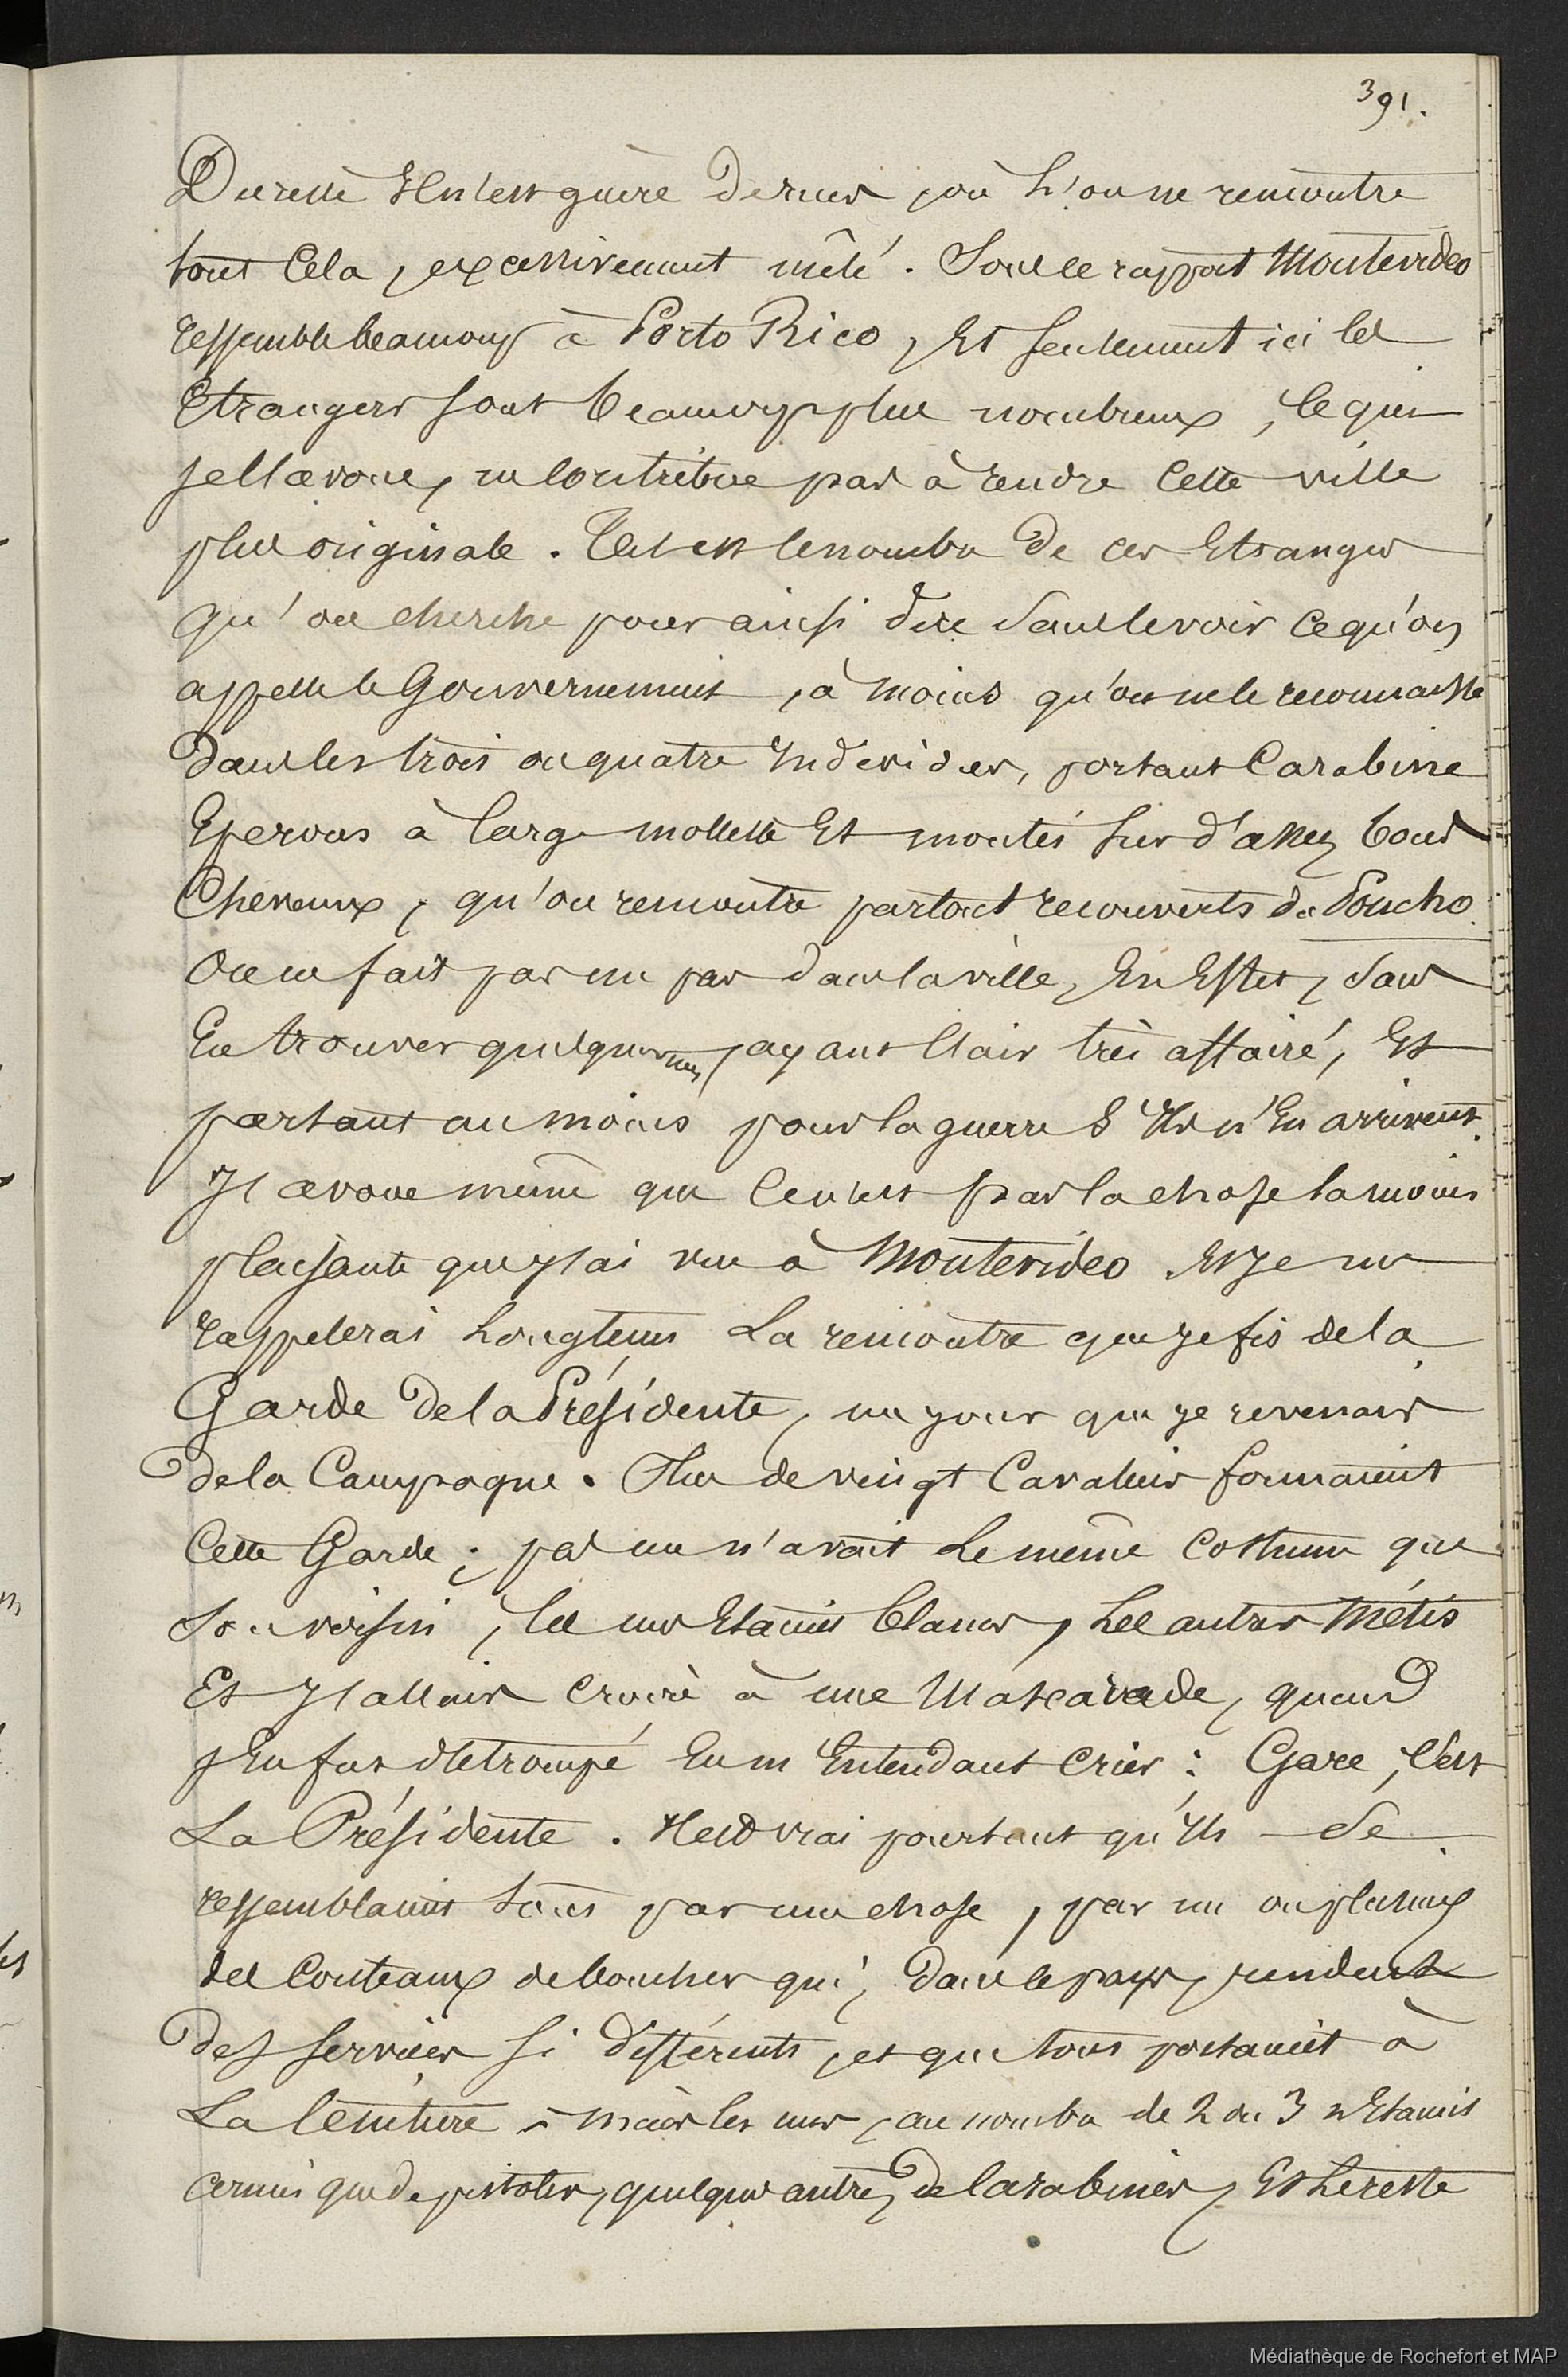 391.
Du reste Il n'est guère de rues, où L'on ne rencontre
tout Cela, excessivement mêlé. Sous ce rapport Montevideo
ressemble beaucoup à Porto Rico, Et seulement ici les
Etrangers sont beaucoup plus nombreux, Ce qui
je l'avoue, ne Contribue pas à rendre Cette ville
plus originale. Tel est le nombre de ces Etrangers
qu'on cherche pour ainsi dire Sans le voir Ce qu'on
appelle le Gouvernement, à moins qu'on ne le reconnaisse
Dans les trois ou quatre Individus, portant Carabine
Eperons à large mollette Et montés sur d'assez bons
Chevaux, qu'on rencontre partout recouverts du Poncho.
On ne fait pas un pas dans la ville, En Effet, Sans
En trouver quelques uns, ayant l'air très affairé, Et
partant au moins pour la guerre S'Ils n'En arrivent.
J'avoue même que Ce n'est pas la chose la moins
plaisante que J'ai vue à Montevideo Et Je me
rappelerai Longtems La rencontre que je fis de la
Garde de la Présidente, un jour que je revenais
de la Campagne. Plus de vingt Cavaliers formaient
Cette Garde; pas un n'avait Le même Costume que
Son voisin, les uns Etaient blancs, Les autres Métis
Et J'allais croire à une Mascarade, quand
j'En fus détrompé En m'Entendant Crier: Gare, C'est
La Présidente. Il est vrai pourtant qu'Ils Se
ressemblaient tous par une chose, par un ou plusieurs
des Couteaux de boucher qui, dans le pays, rendent
Des services si différents, et que tous portaient à
La Ceinture, mais les uns, au nombre de 2 ou 3 n'Etaient
armés que de pistolets, quelques autres, de Carabines, Et Le reste
Médiathèque de Rochefort et MAP